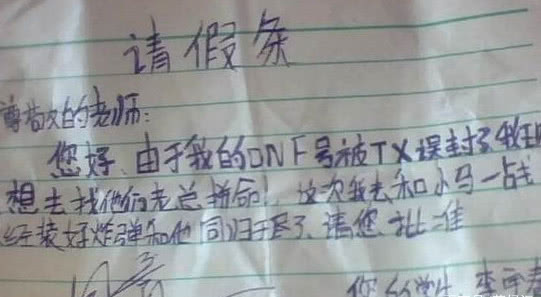 请假条
尊敬的老师:
您好,由于我的DNF号被TX误封了我现
想去找他们老总拼命!这次我去和小马一战
经装好炸弹和他同归于尽了,请您批准
您的学生